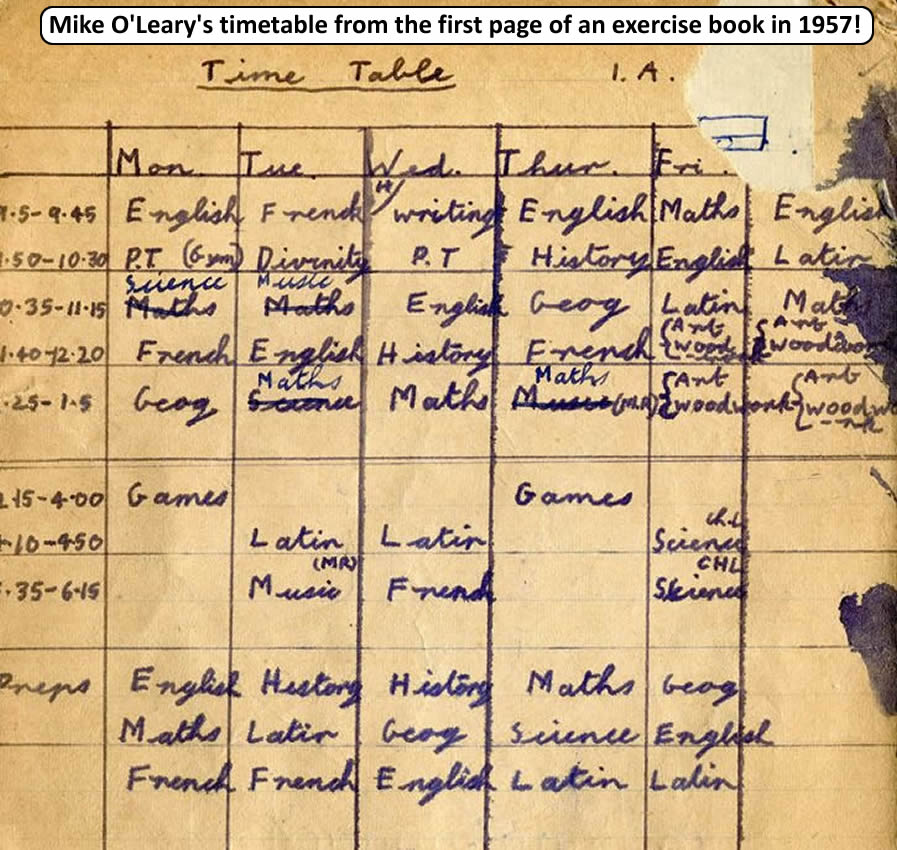 Mike O'Leary's timetable from the first page of an exercise book in 1957!
Time Table I. A.
Mon. Tue. Wed. Thur. Fri.
9.5-9.45 English French writing English Maths English
.50-10.30 P.T (Gym) Divinity P.T History English Latin
Science Music
0.35-11.15 Maths Maths English Geog Latin Maths
1.40-12.20 French English History French {Art wood {Art woodwork
Maths Maths
.25-1.5 Geog Science Maths Music (MR) {Art woodwork {Art woodwo
2.15-4.00 Games Games
.10-4.50 Latin Latin Ch.L Science
.35-6.15 (MR) Music French CHL Science
Preps English History History Maths Geog
Maths Latin Geog Science English
French French English Latin Latin